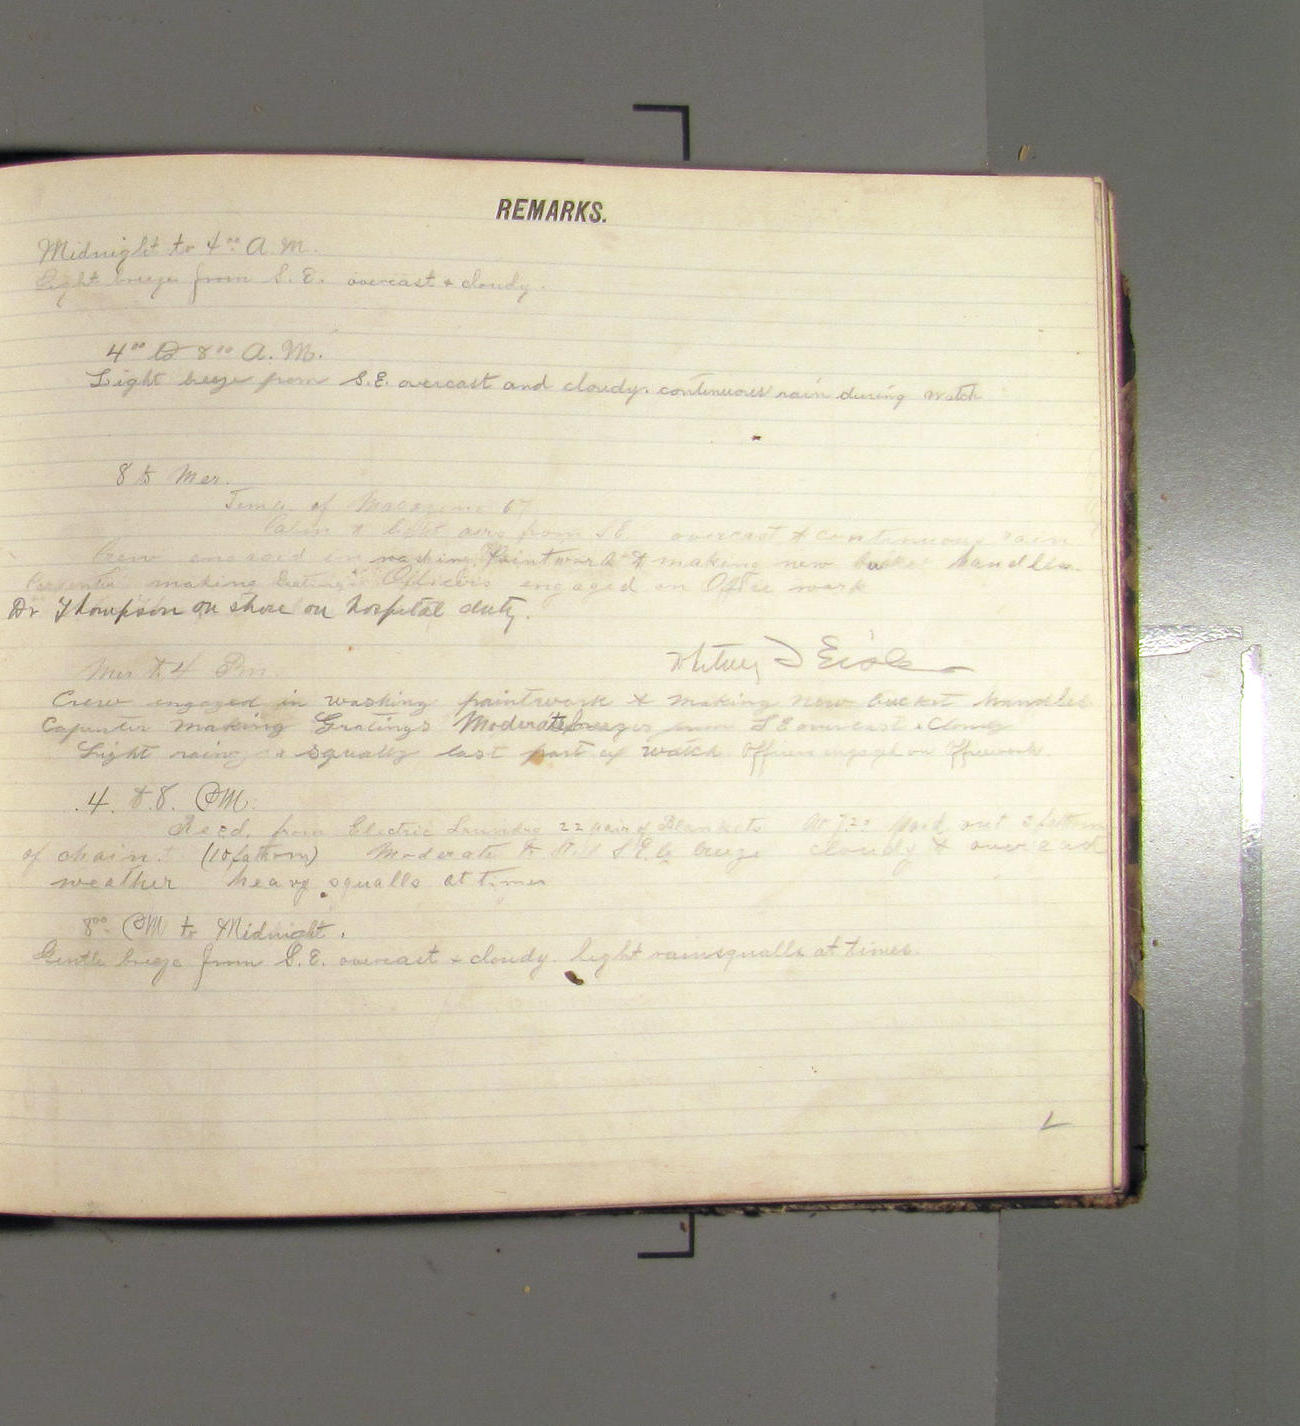 REMARKS.
Midnight to 4⁰⁰ A.M.
Light breeze from S.E. overcast & cloudy.
4⁰⁰ to 8⁰⁰ A.M.
Light breeze from S.E. overcast and cloudy. continuous rain during watch
8 to Mer.
Temp. of Magazine 67
Calm & light airs from SE overcast & continuous rain
Crew engaged in washing Paintwork & making new bucket handles.
Carpenter making Gratings. Officers engaged on Office work
Dr Thompson on shore on hospital duty.
Mer to 4 Pm.
Crew engaged in washing paintwork & making new bucket handles
Capenter making Gratings Moderate breezes from SE overcast & Cloudy
Light rain & squally last part of watch Officers engaged on Officework.
4 to 8. PM.
Recd. from Electric Laundry 22 pair of Blankets At 7.20 paid out 2 fathom
of chain. (10 fathom) Moderate to S'E'ly breeze cloudy & overcast
weather heavy squalls at times
8⁰⁰ PM to Midnight.
Gentle breeze from S.E. overcast & cloudy. light rainsqualls at times.